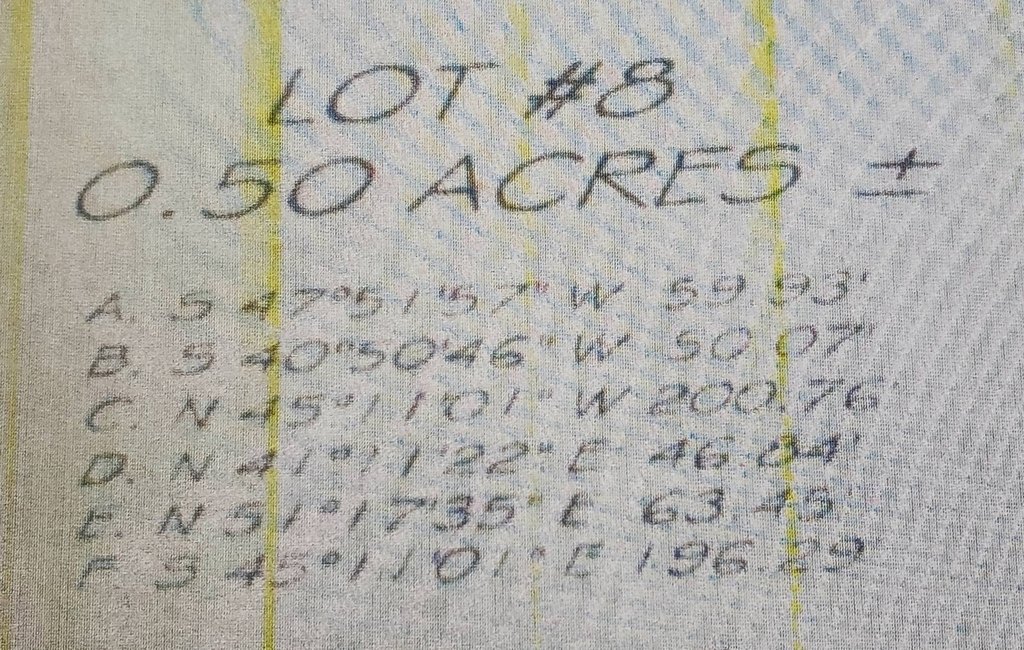 LOT #8
0.50 ACRES ±
A. S 47°51'57" W 59.93'
B. S 40°50'46" W 50.07'
C. N 45°11'01" W 200.76'
D. N 41°11'22" E 46.84'
E. N 51°17'35" E 63.45'
F. S 45°11'01" E 196.29'